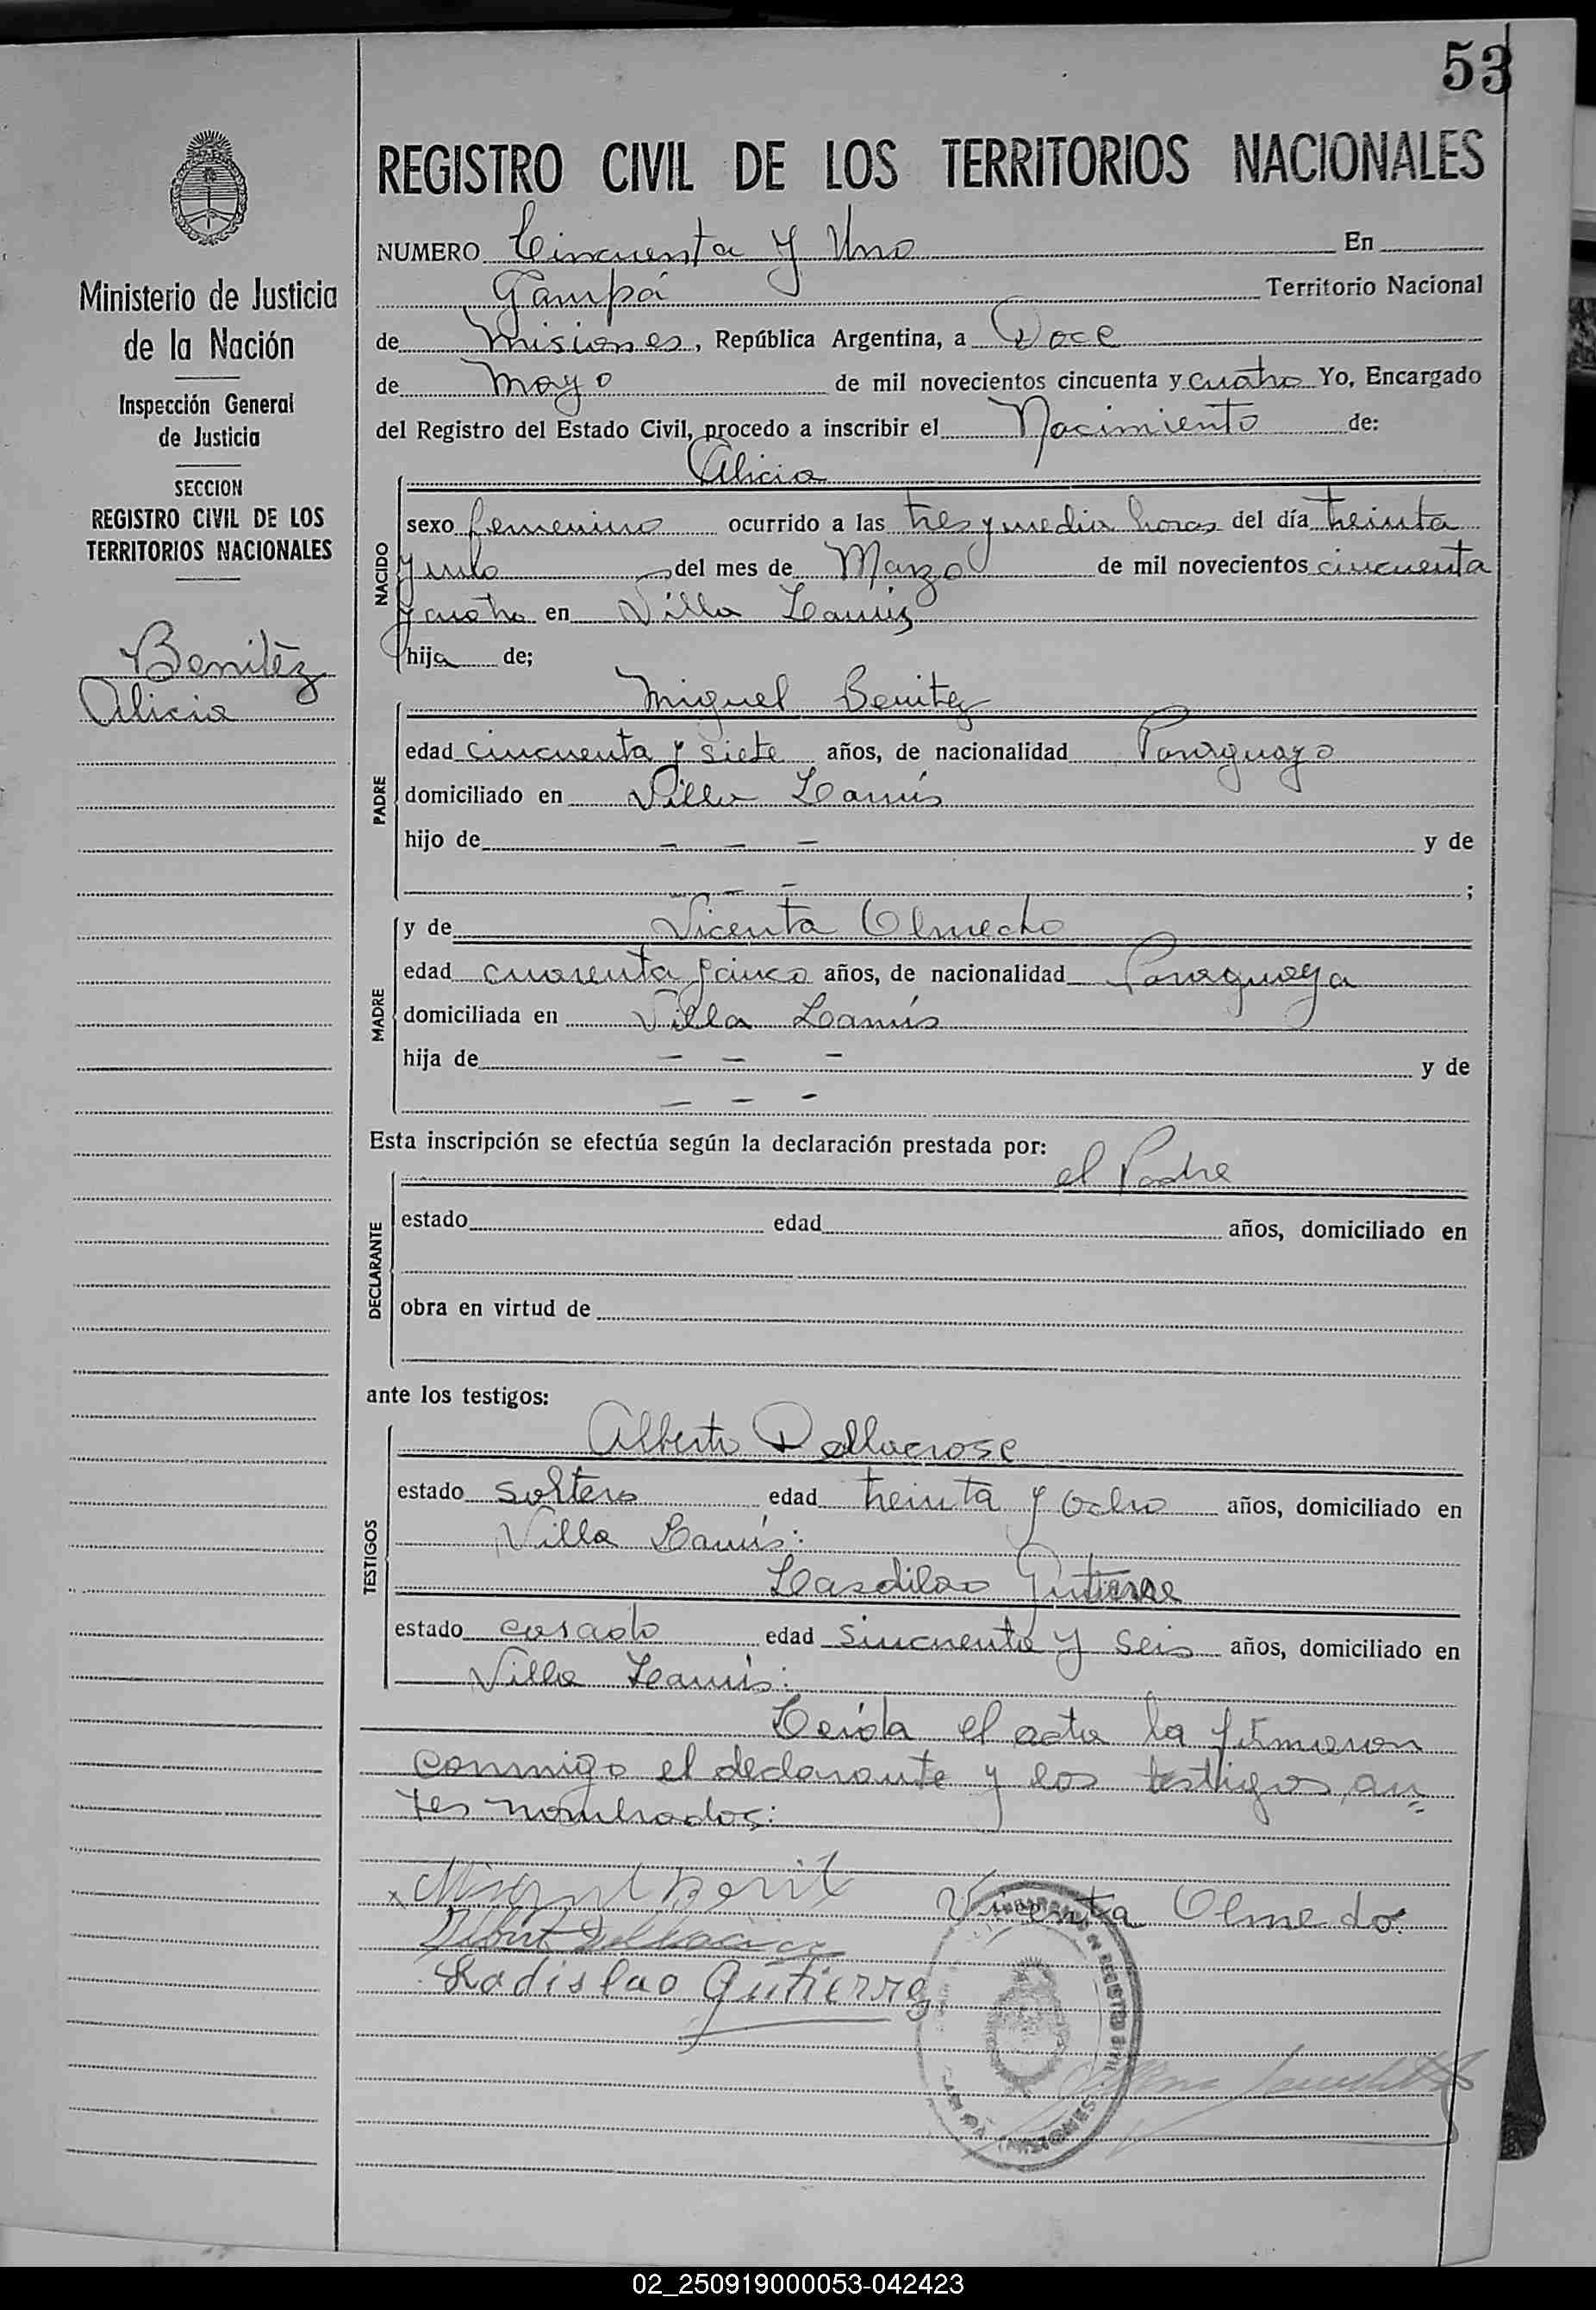 53
REGISTRO CIVIL DE LOS TERRITORIOS NACIONALES
NUMERO Cincuenta y Uno En
Gampá Territorio Nacional
de Misiones, República Argentina, a Doce
de Mayo de mil novecientos cincuenta y cuatro Yo, Encargado
del Registro del Estado Civil, procedo a inscribir el Nacimiento de:
Alicia
NACIDO
sexo femenino ocurrido a las tres y media horas del día treinta
y uno del mes de Marzo de mil novecientos cincuenta
y cuatro en Villa Lanús
hija de;
Miguel Benitez
PADRE
edad cincuenta y siete años, de nacionalidad Paraguayo
domiciliado en Villa Lanús
hijo de - - - y de
- - - ;
MADRE
y de Vicenta Olmedo
edad cuarenta y cinco años, de nacionalidad Paraguaya
domiciliada en Villa Lanús
hija de - - - y de
- - -
Esta inscripción se efectúa según la declaración prestada por:
el Padre
DECLARANTE
estado edad años, domiciliado en
obra en virtud de
ante los testigos:
Alberto Dellacrose
TESTIGOS
estado soltero edad treinta y ocho años, domiciliado en
Villa Lanús:
Lasdilao Gutierre
estado casado edad sincuenta y seis años, domiciliado en
Villa Lanús:
Leida el acta la firmaron
conmigo el declarante y los testigos, an=
tes nombrados:
Miguel Benit Vicenta Olmedo
Ladislao Gutierrez
REGISTRO CIVIL
(MISIONES)
Ministerio de Justicia
de la Nación
Inspección General
de Justicia
SECCION
REGISTRO CIVIL DE LOS
TERRITORIOS NACIONALES
Benitez
Alicia
02_250919000053-042423